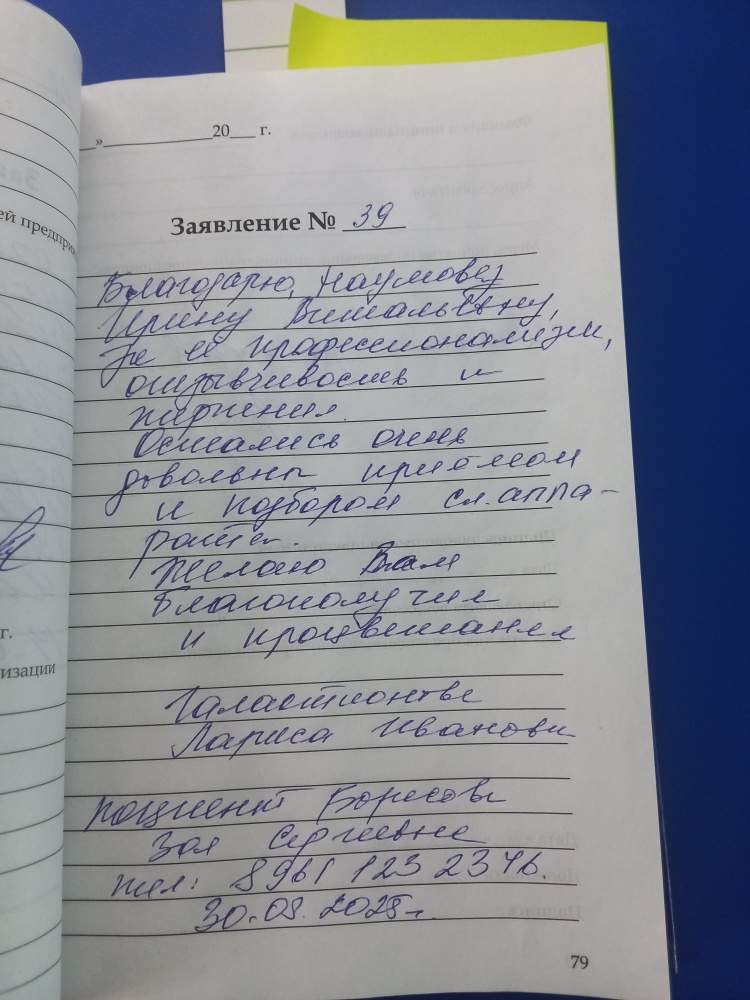 »            20    г.
ей предприя
Заявление № 39
Благодарю, Наумову
Ирину Витальевну,
за её профессионализм,
отзывчивость и
терпения.
Остались очень
довольны приёмом
и подбором сл. аппа-
ратa.
Желаю Вам
Благополучия
и процветания
Лариса Ивановн
пациент Борисова
Зоя Сергеевна
тел: 8961 123 23 46.
г.
изации
79